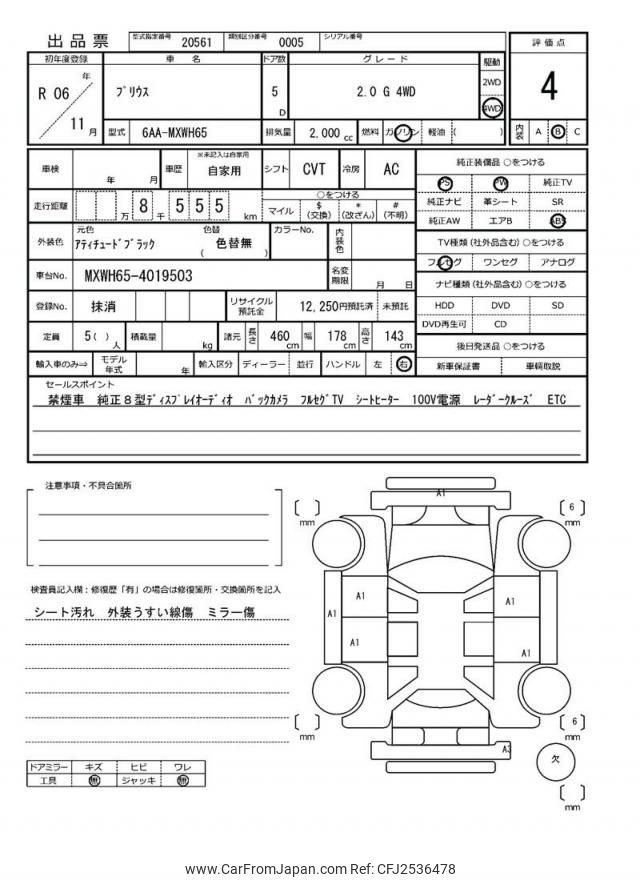 出品票 型式指定番号 20561 類別区分番号 0005 シリアル番号
初年度登録 車名 ドア数 グレード 駆動 評価点
R 06 年 11 月 プリウス 5 D 2.0 G 4WD 2WD 4WD 4
型式 6AA-MXWH65 排気量 2,000 cc 燃料 ガソリン 軽油 ( ) 内装 A B C
車検 年 月 車歴 ※未記入は自家用 自家用 シフト CVT 冷房 AC
走行距離 万 8 千 5 5 5 km ○をつける マイル $ (交換) * (改ざん) # (不明)
外装色 元色 アティチュードブラック 色替 ( 色替無 ) カラーNo. 内装色
車台No. MXWH65-4019503 名変期限 月 日
登録No. 抹消 リサイクル預託金 12,250円預託済 未預託
定員 5 ( ) 人 積載量 kg 諸元 長さ 460 cm 幅 178 cm 高さ 143 cm
輸入車のみ⇒ モデル年式 年 輸入区分 ディーラー 並行 ハンドル 左 右
純正装備品 ○をつける
PS PW 純正TV
純正ナビ 革シート SR
純正AW エアB ABS
TV種類 (社外品含む) ○をつける
フルセグ ワンセグ アナログ
ナビ種類 (社外品含む) ○をつける
HDD DVD SD
DVD再生可 CD
後日発送品 ○をつける
新車保証書 車輌取説
セールスポイント
禁煙車 純正8型ディスプレイオーディオ バックカメラ フルセグTV シートヒーター 100V電源 レーダークルーズ ETC
注意事項・不具合箇所
検査員記入欄:修復歴「有」の場合は修復箇所・交換箇所を記入
シート汚れ 外装うすい線傷 ミラー傷
ドアミラー キズ ヒビ ワレ
工具 無 ジャッキ 無
A1
[ ] mm
[ 6 ] mm
A1
A1
A1
A1
A1
[ ] mm
[ 6 ] mm
A3
欠
[ ] mm
www.CarFromJapan.com Ref: CFJ2536478